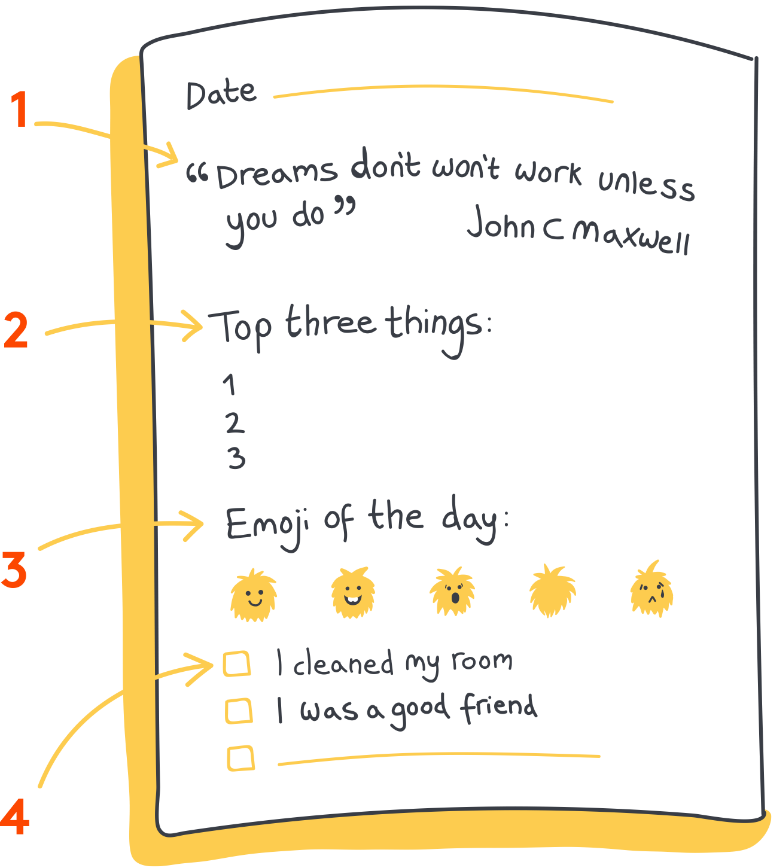 Date
1
“Dreams don't won't work unless
you do”
John C Maxwell
2
Top three things:
1
2
3
3
Emoji of the day:
4
I cleaned my room
I was a good friend